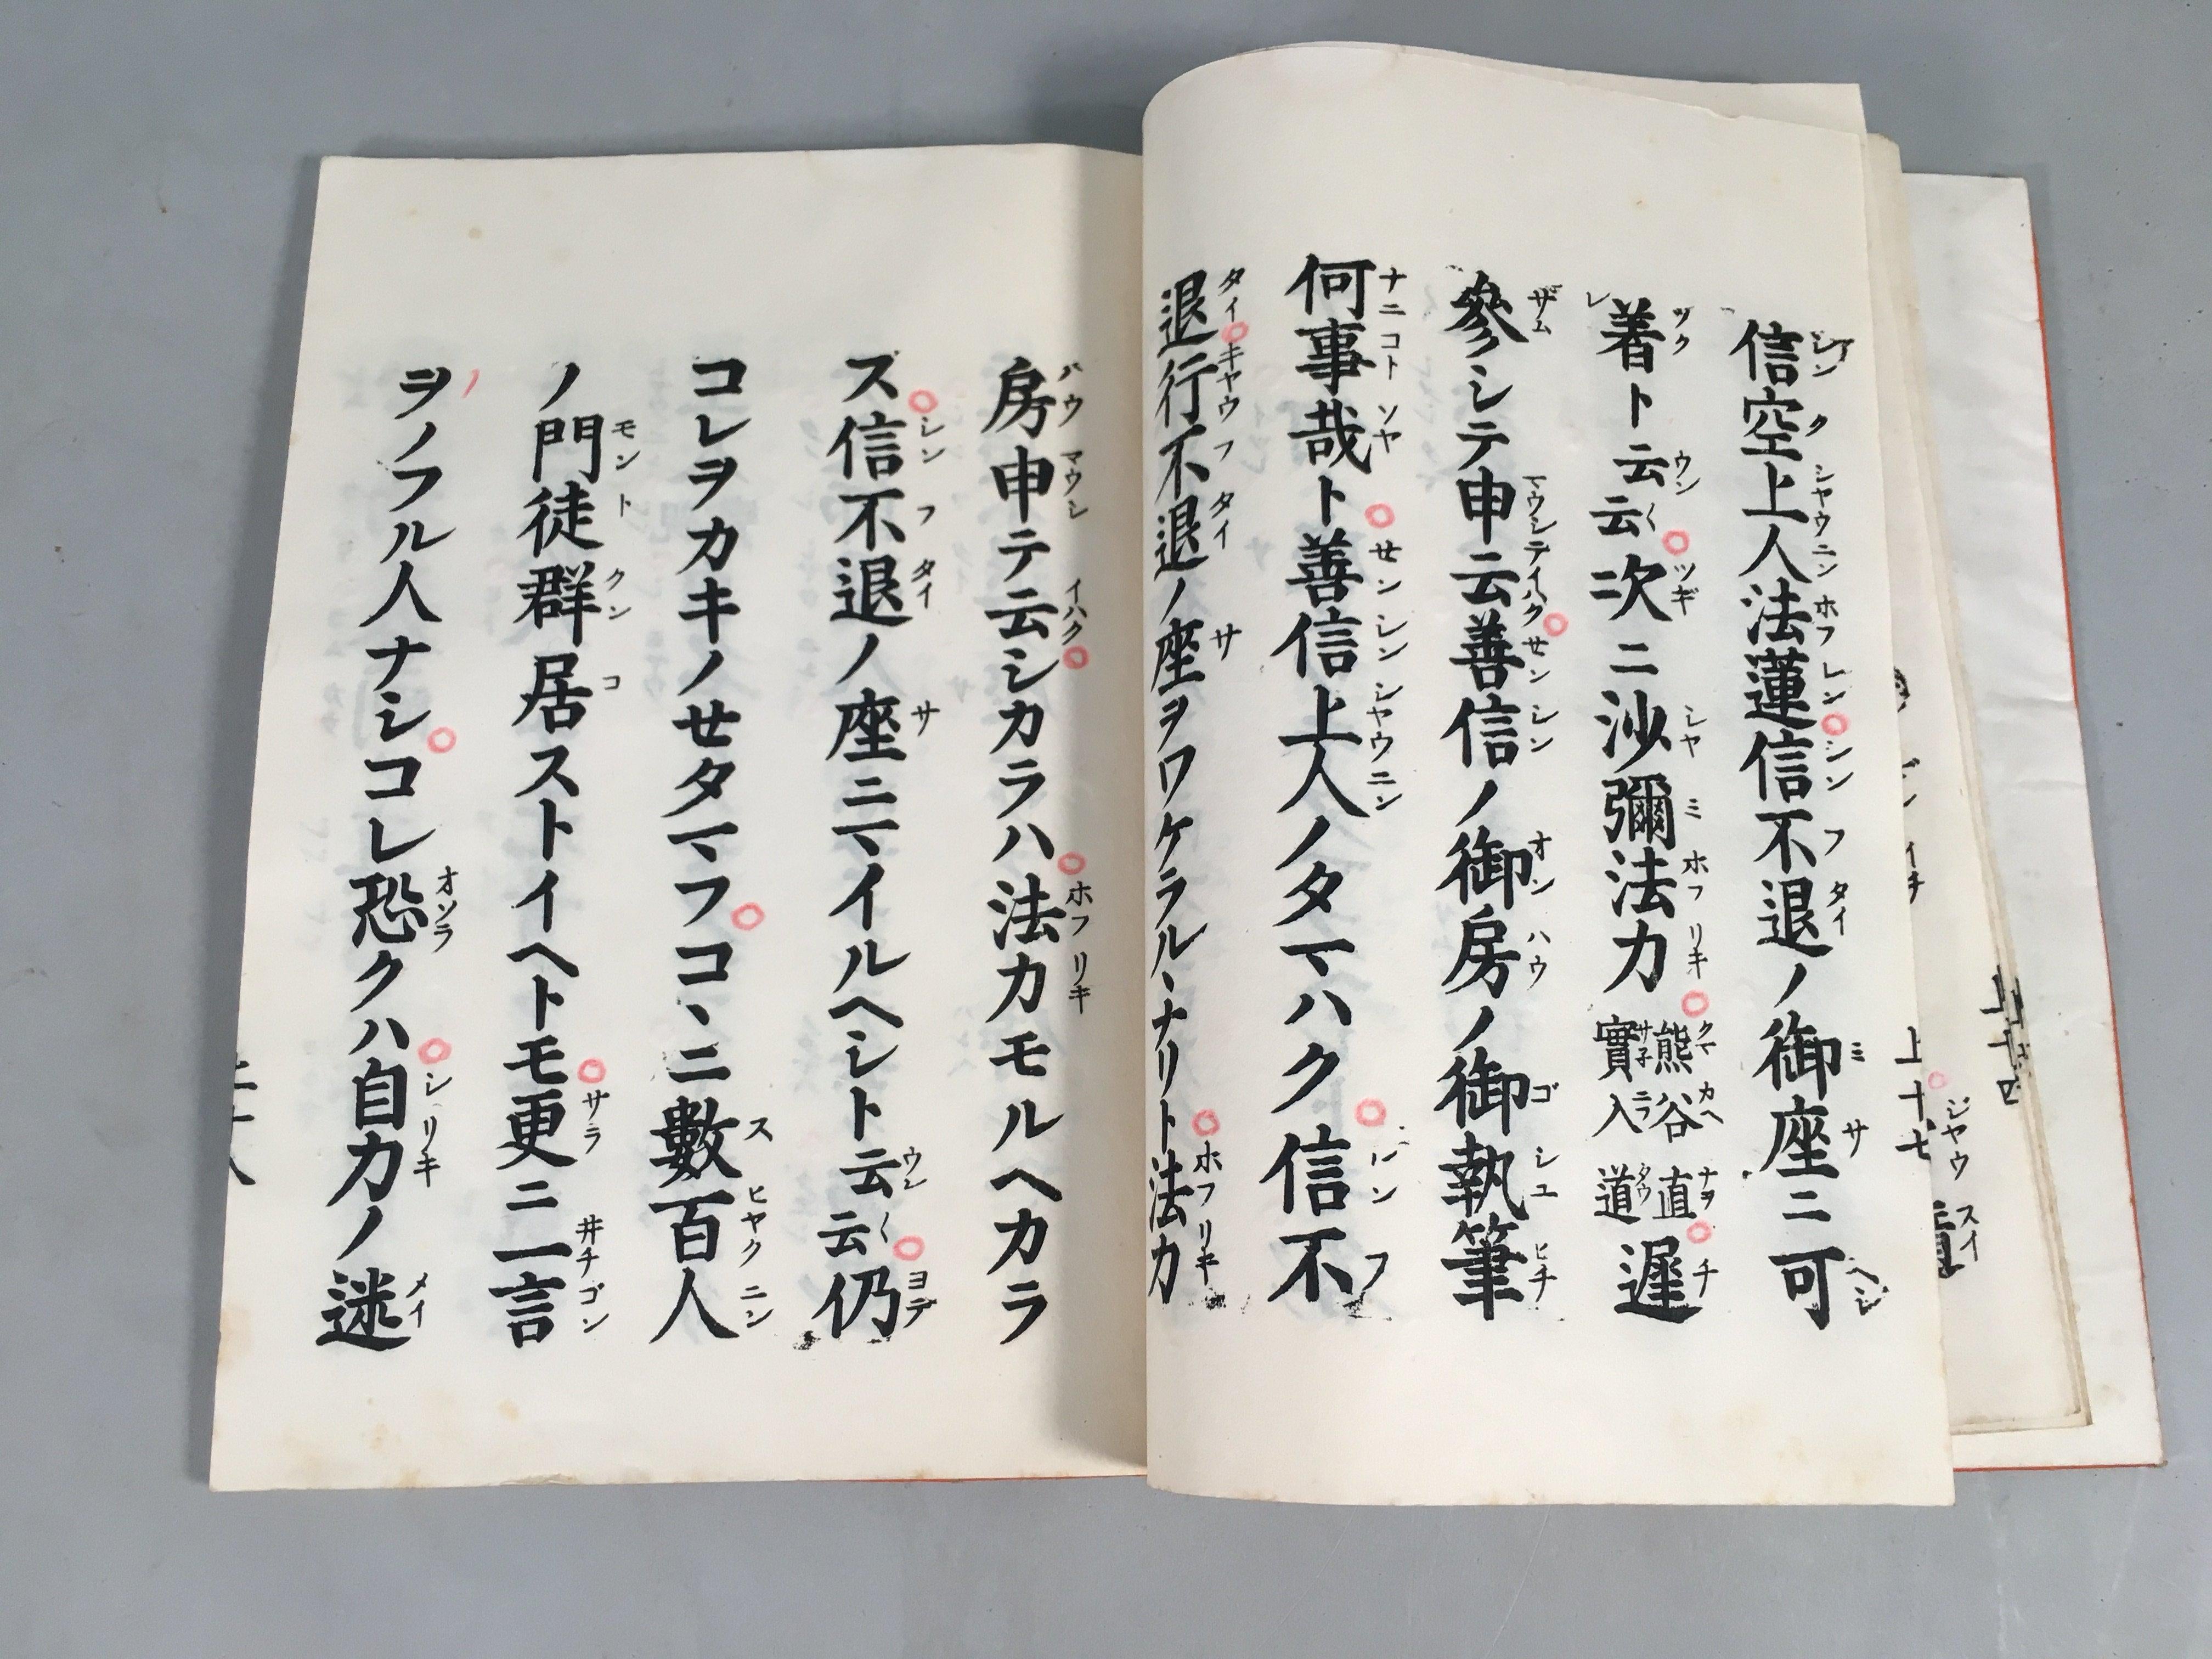 信空上人法蓮信不退ノ御座ニ可
着ト云云次ニ沙彌法力熊谷直實入道遲
參シテ申云善信ノ御房ノ御執筆
何事哉ト善信上人ノタマハク信不
退行不退ノ座ヲワケラルヽナリト法力
房申テ云シカラハ法力モルヘカラ
ス信不退ノ座ニマイルヘシト云云仍
コレヲカキノせタマフコヽニ數百人
ノ門徒群居ストイヘトモ更ニ一言
ヲノフル人ナシコレ恐クハ自力ノ迷